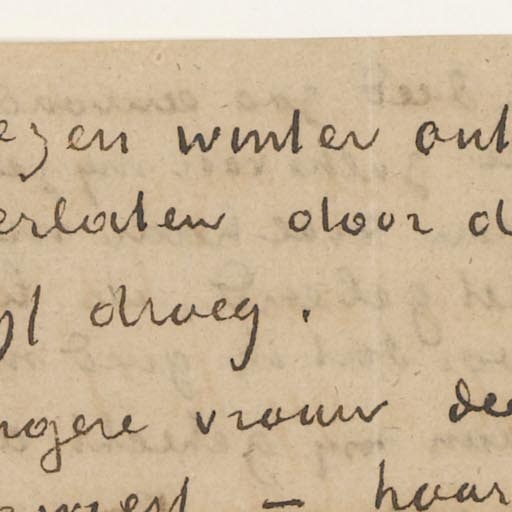 ezen winter ont
erlaten door d
ijf droeg.
ngere vrouw dee
– haar